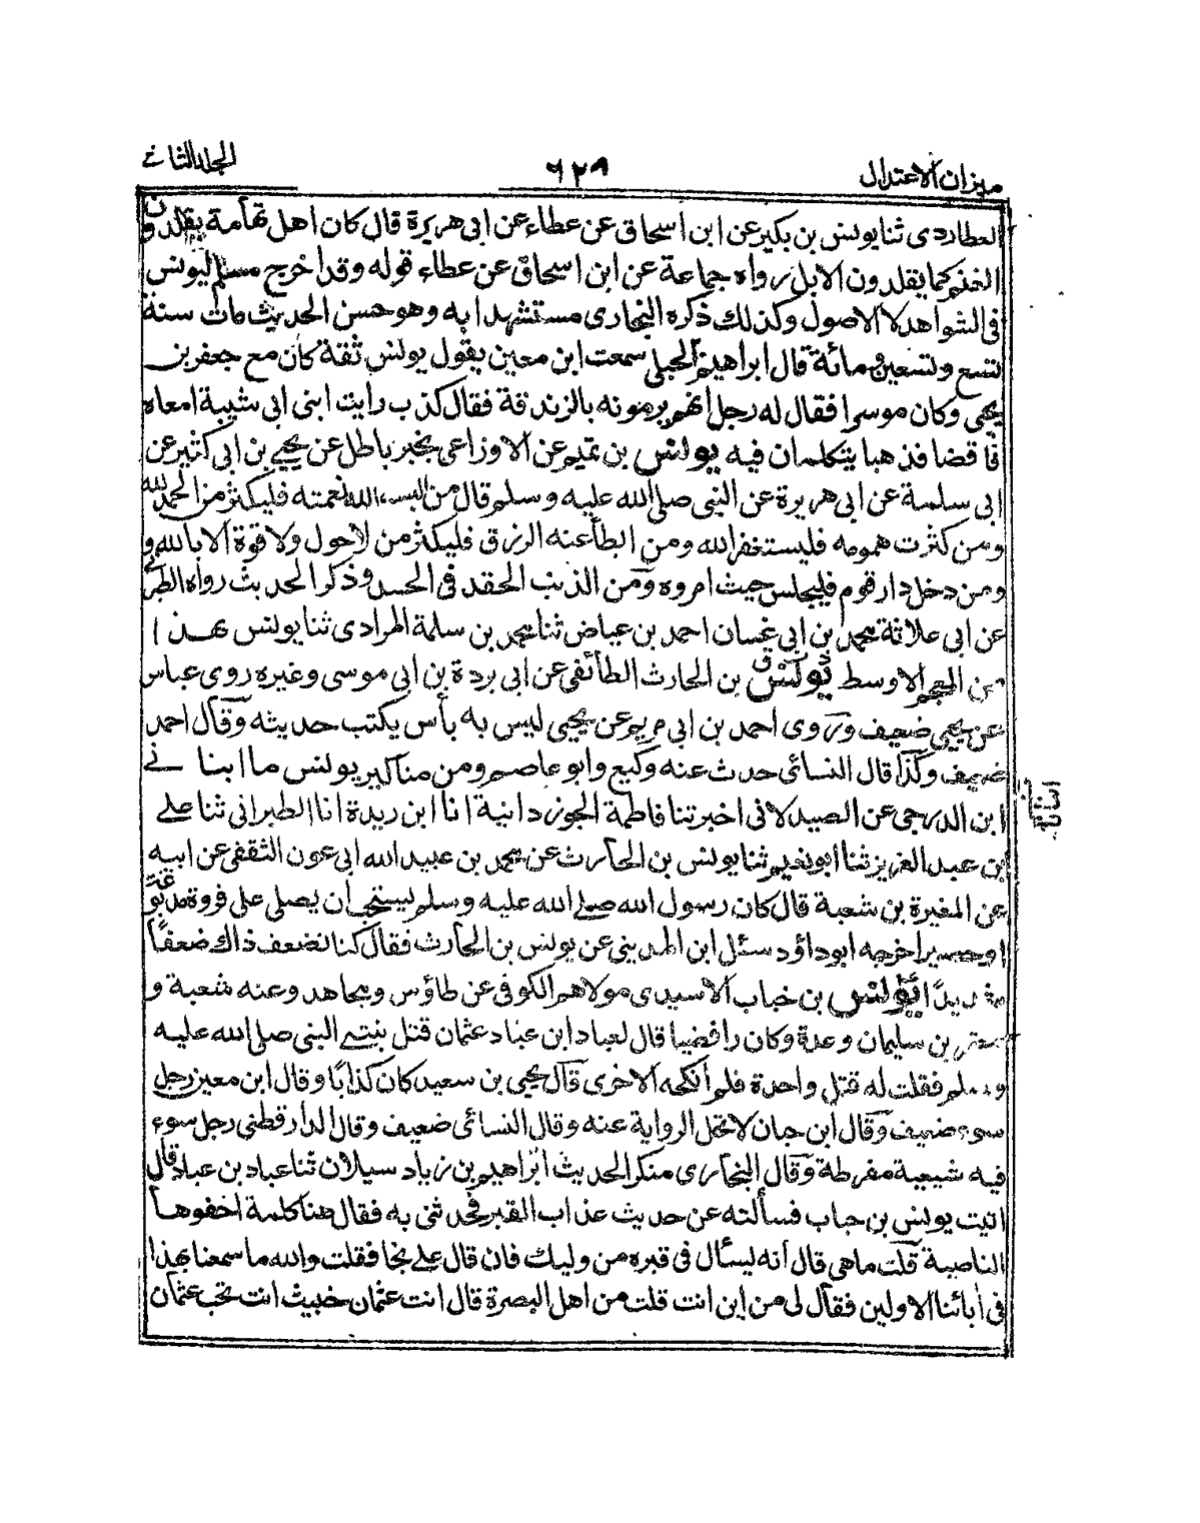 ميزان الاعتدال
٦٢٩
المجلد الثاني
العطاردى ثنا يونس بن بكير عن ابن اسحاق عن عطاء عن ابى هريرة قال كان اهل تهامة يقلدون
الغنم كما يقلدون الابل رواه جماعة عن ابن اسحاق عن عطاء قوله وقد اخرج مسلم ليونس
فى الشواهد لا الاصول وكذلك ذكره البخارى مستشهدا به وهو حسن الحديث مات سنة
تسع وتسعين ومائة قال ابراهيم سمعت ابن معين يقول يونس ثقة كان مع جعفر بن
يحيى وكان موسرا فقال له رجل انهم يرمونه بالزندقة فقال كذب رايت ابنى ابى شيبة اتياه
فاقضا فذهبا يتكلمان فيه يونس بن تميم عن الاوزاعى بخبر باطل عن يحيى بن ابى كثير عن
ابى سلمة عن ابى هريرة عن النبى صلى الله عليه وسلم قال من البسه الله نعمته فليكثر من الحمد لله
ومن كثرت همومه فليستغفر الله ومن ابطأ عنه الرزق فليكثر من لاحول ولا قوة الا بالله و
ومن دخل دار قوم فليجلس حيث امروه ومن الذنب الحقد فى الحسد وذكر الحديث رواه الطبرانى
عن ابى علاثة محمد بن ابى غسان احمد بن عياض ثنا محمد بن سلمة المرادى ثنا يونس بهذا
من المعجم الاوسط يونس بن الحارث الطائفى عن ابى بردة بن ابى موسى وغيره روى عباس
عن يحيى ضعيف وروى احمد بن ابى مريم عن يحيى ليس به بأس يكتب حديثه وقال احمد
ضعيف وكذا قال النسائى حدث عنه وكيع وابو عاصم ومن مناكير يونس ما انبانى
ابن الدرجى عن الصيدلانى اخبرتنا فاطمة الجوزدانية انا ابن ريذة انا الطبرانى ثنا على
ابن عبد العزيز ثنا ابونعيم ثنا يونس بن الحارث عن محمد بن عبيد الله ابى عون الثقفى عن ابيه
عن المغيرة بن شعبة قال كان رسول الله صلى الله عليه وسلم يستحب ان يصلى على فروة مدبوغة
او حصير اخرجه ابو داؤد سئل ابن المدينى عن يونس بن الحارث فقال كنا نضعف ذاك ضعفاً
شديداً يونس بن خباب الاسيدى مولاهم الكوفى عن طاؤس ومجاهد وعنه شعبة و
معتمر بن سليمان وعدة وكان رافضيا قال لعباد ابن عباد عثمان قتل بنتى النبى صلى الله عليه
وسلم فقلت له قتل واحدة فلم انكحه الاخرى قال يحيى بن سعيد كان كذابا وقال ابن معين رجل
سوء ضعيف وقال ابن حبان لا تحل الرواية عنه وقال النسائى ضعيف وقال الدارقطنى رجل سوء
فيه شيعية مفرطة وقال البخارى منكر الحديث ابراهيم بن زياد سبلان ثنا عباد بن عباد قال
اتيت يونس بن خباب فسألته عن حديث عذاب القبر فحدثنى به فقال هنا كلمة اخفوها
الناصبة قلت ماهى قال أنه ليسأل فى قبره من وليك فان قال على نجا فقلت والله ما سمعنا بهذا
فى أبائنا الاولين فقال لى من اين انت قلت من اهل البصرة قال انت عثمان خبيث انت تحب عثمان